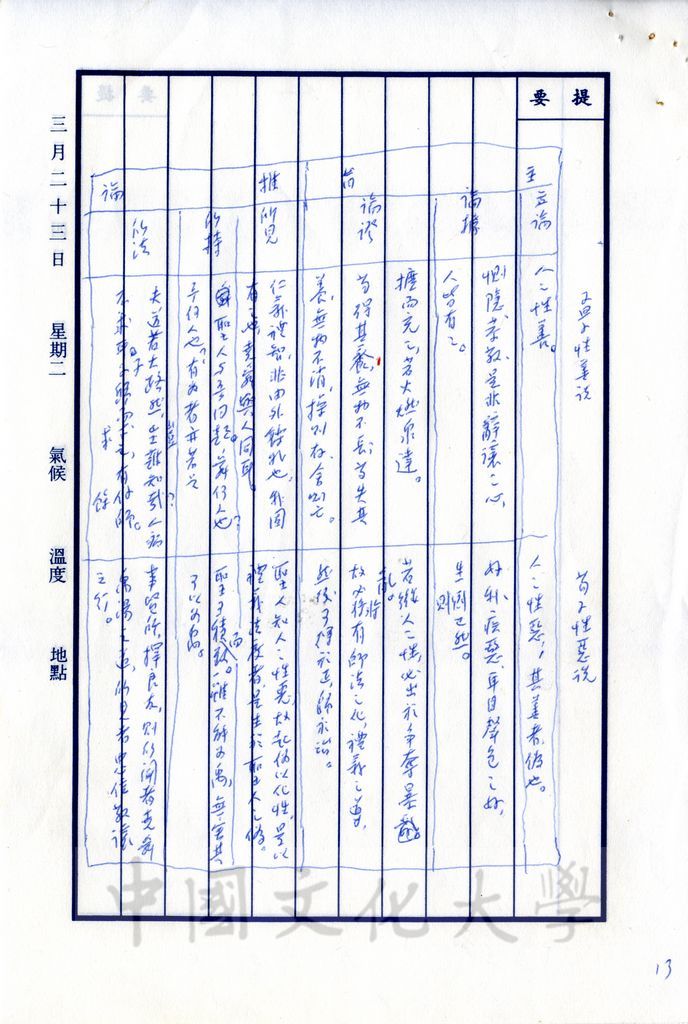 提要
三月二十三日 星期二 氣候 溫度 地點
孟子性善說
荀子性惡說
主
立論
人之性善。
人之性惡,其善者偽也。
論據
惻隱、羞惡、是非、辭讓之心,
人皆有之。
好利、疾惡、耳目聲色之好,
生則已然。
論證
擴而充之,若火燃泉達。
苟得其養,無物不長;苟失其
養,無物不消,操則存,舍則亡。
若縱人之性,必出於爭奪暴亂。
故必將有師法之化,禮義之道,
然後
推
所見
仁義禮智,非由外鑠我也,我固
有之也,堯舜與人同耳。
聖人知人之性惡,故起偽以化性,是以
禮義法度者,是生於聖人之偽。
所持
聖人與我同
舜何人也?
予何人也?有為者亦若是
聖可積而致。雖不能為禹,無害其
可以為禹。
論
所法
夫道若大路然,豈難知哉?人病
不求耳,子歸而求之,有餘師。
事賢師,擇良友,則所聞者堯舜
禹湯之道,所見者忠信敬讓
之行。
中國文化大學
13